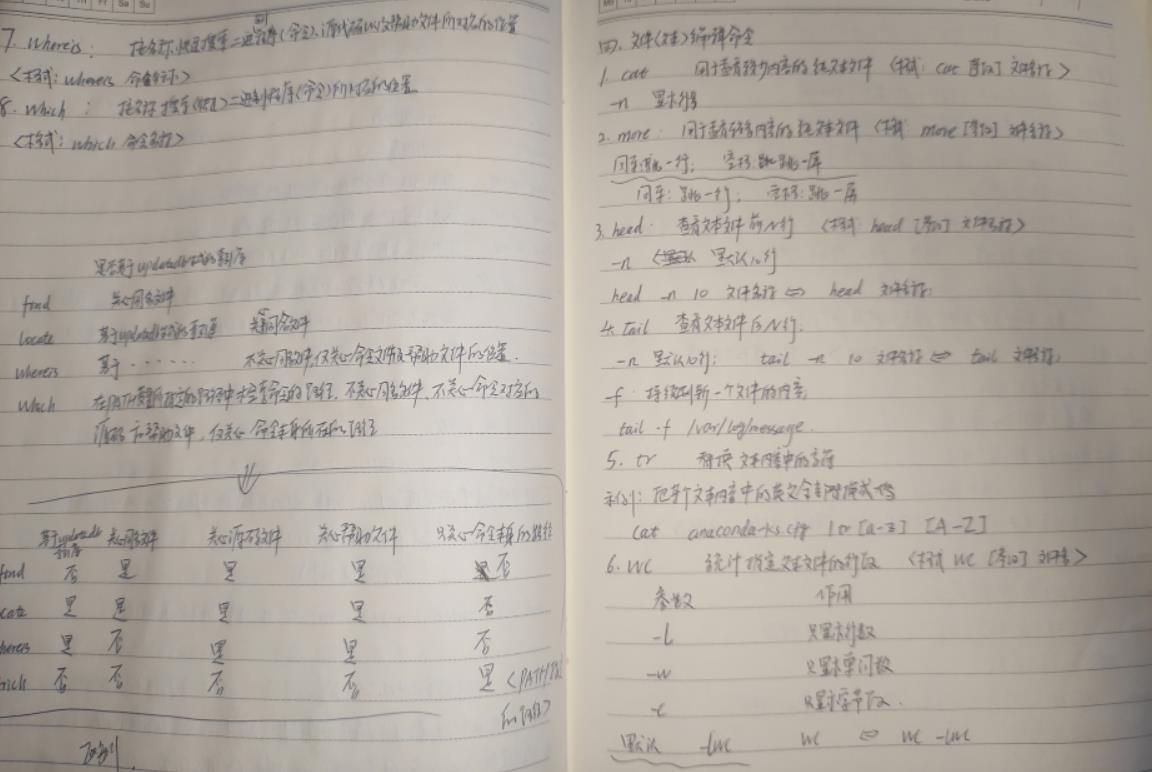 7. whereis: 按名称快速搜索二进制程序(命令)、源代码以及帮助文件所对应的位置
<格式: whereis 命令名称>
8. which: 按名称搜索二进制程序(命令)所对应的位置
<格式: which 命令名称>
是否基于updatedb生成的索引库
find 关心同名文件
locate 基于updatedb生成的索引库 关心同名文件
whereis 基于…… 不关心同名文件,仅关心命令文件及帮助文件的位置.
which 在PATH变量所指定的路径中检索命令的路径,不关心同名文件,不关心命令对应的
源码和帮助文件,仅关心命令本身所在的路径
基于updatedb 关心同名文件 关心源码文件 关心帮助文件 只关心命令本身的路径
索引库
find 否 是 是 是 否
cate 是 是 是 是 否
hereis 是 否 是 是 否
hich 否 否 否 否 是 <PATH
的路径>
四. 文件(文本)编辑命令
1. cat 用于查看较少内容的纯文本文件 <格式: cat [参数] 文件名称>
-n 显示行号
2. more: 用于查看较多内容的纯文本文件 <格式: more [参数] 文件名称>
回车:跳一行; 空格:跳一屏
回车: 跳一行; 空格: 跳一屏
3. head: 查看文本文件前N行 <格式: head [参数] 文件名称>
-n 默认10行
head -n 10 文件名称 ⇔ head 文件名称;
4. tail 查看文本文件后N行;
-n 默认10行; tail -n 10 文件名称 ⇔ tail 文件名称;
-f: 持续刷新一个文件的内容;
tail -f /var/log/message.
5. tr 替换文本内容中的字符
示例: 把某个文本内容中的英文全部替换成大写
cat anaconda-ks.cfg | tr [a-z] [A-Z]
6. wc 统计指定文本文件的行数 <格式 wc [参数] 文件名>
参数 作用
-l 只显示行数
-w 只显示单词数
-c 只显示字节数.
默认 -lwc wc ⇔ wc -lwc